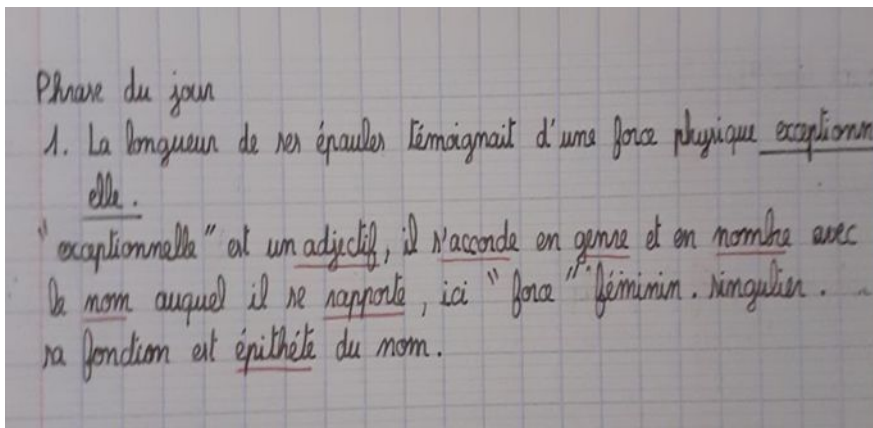 Phrase du jour
1. La longueur de ses épaules témoignait d'une force physique exceptionn
elle.
"exceptionnelle" est un adjectif, il s'accorde en genre et en nombre avec
le nom auquel il se rapporte, ici "force" féminin. singulier.
sa fonction est épithéte du nom.